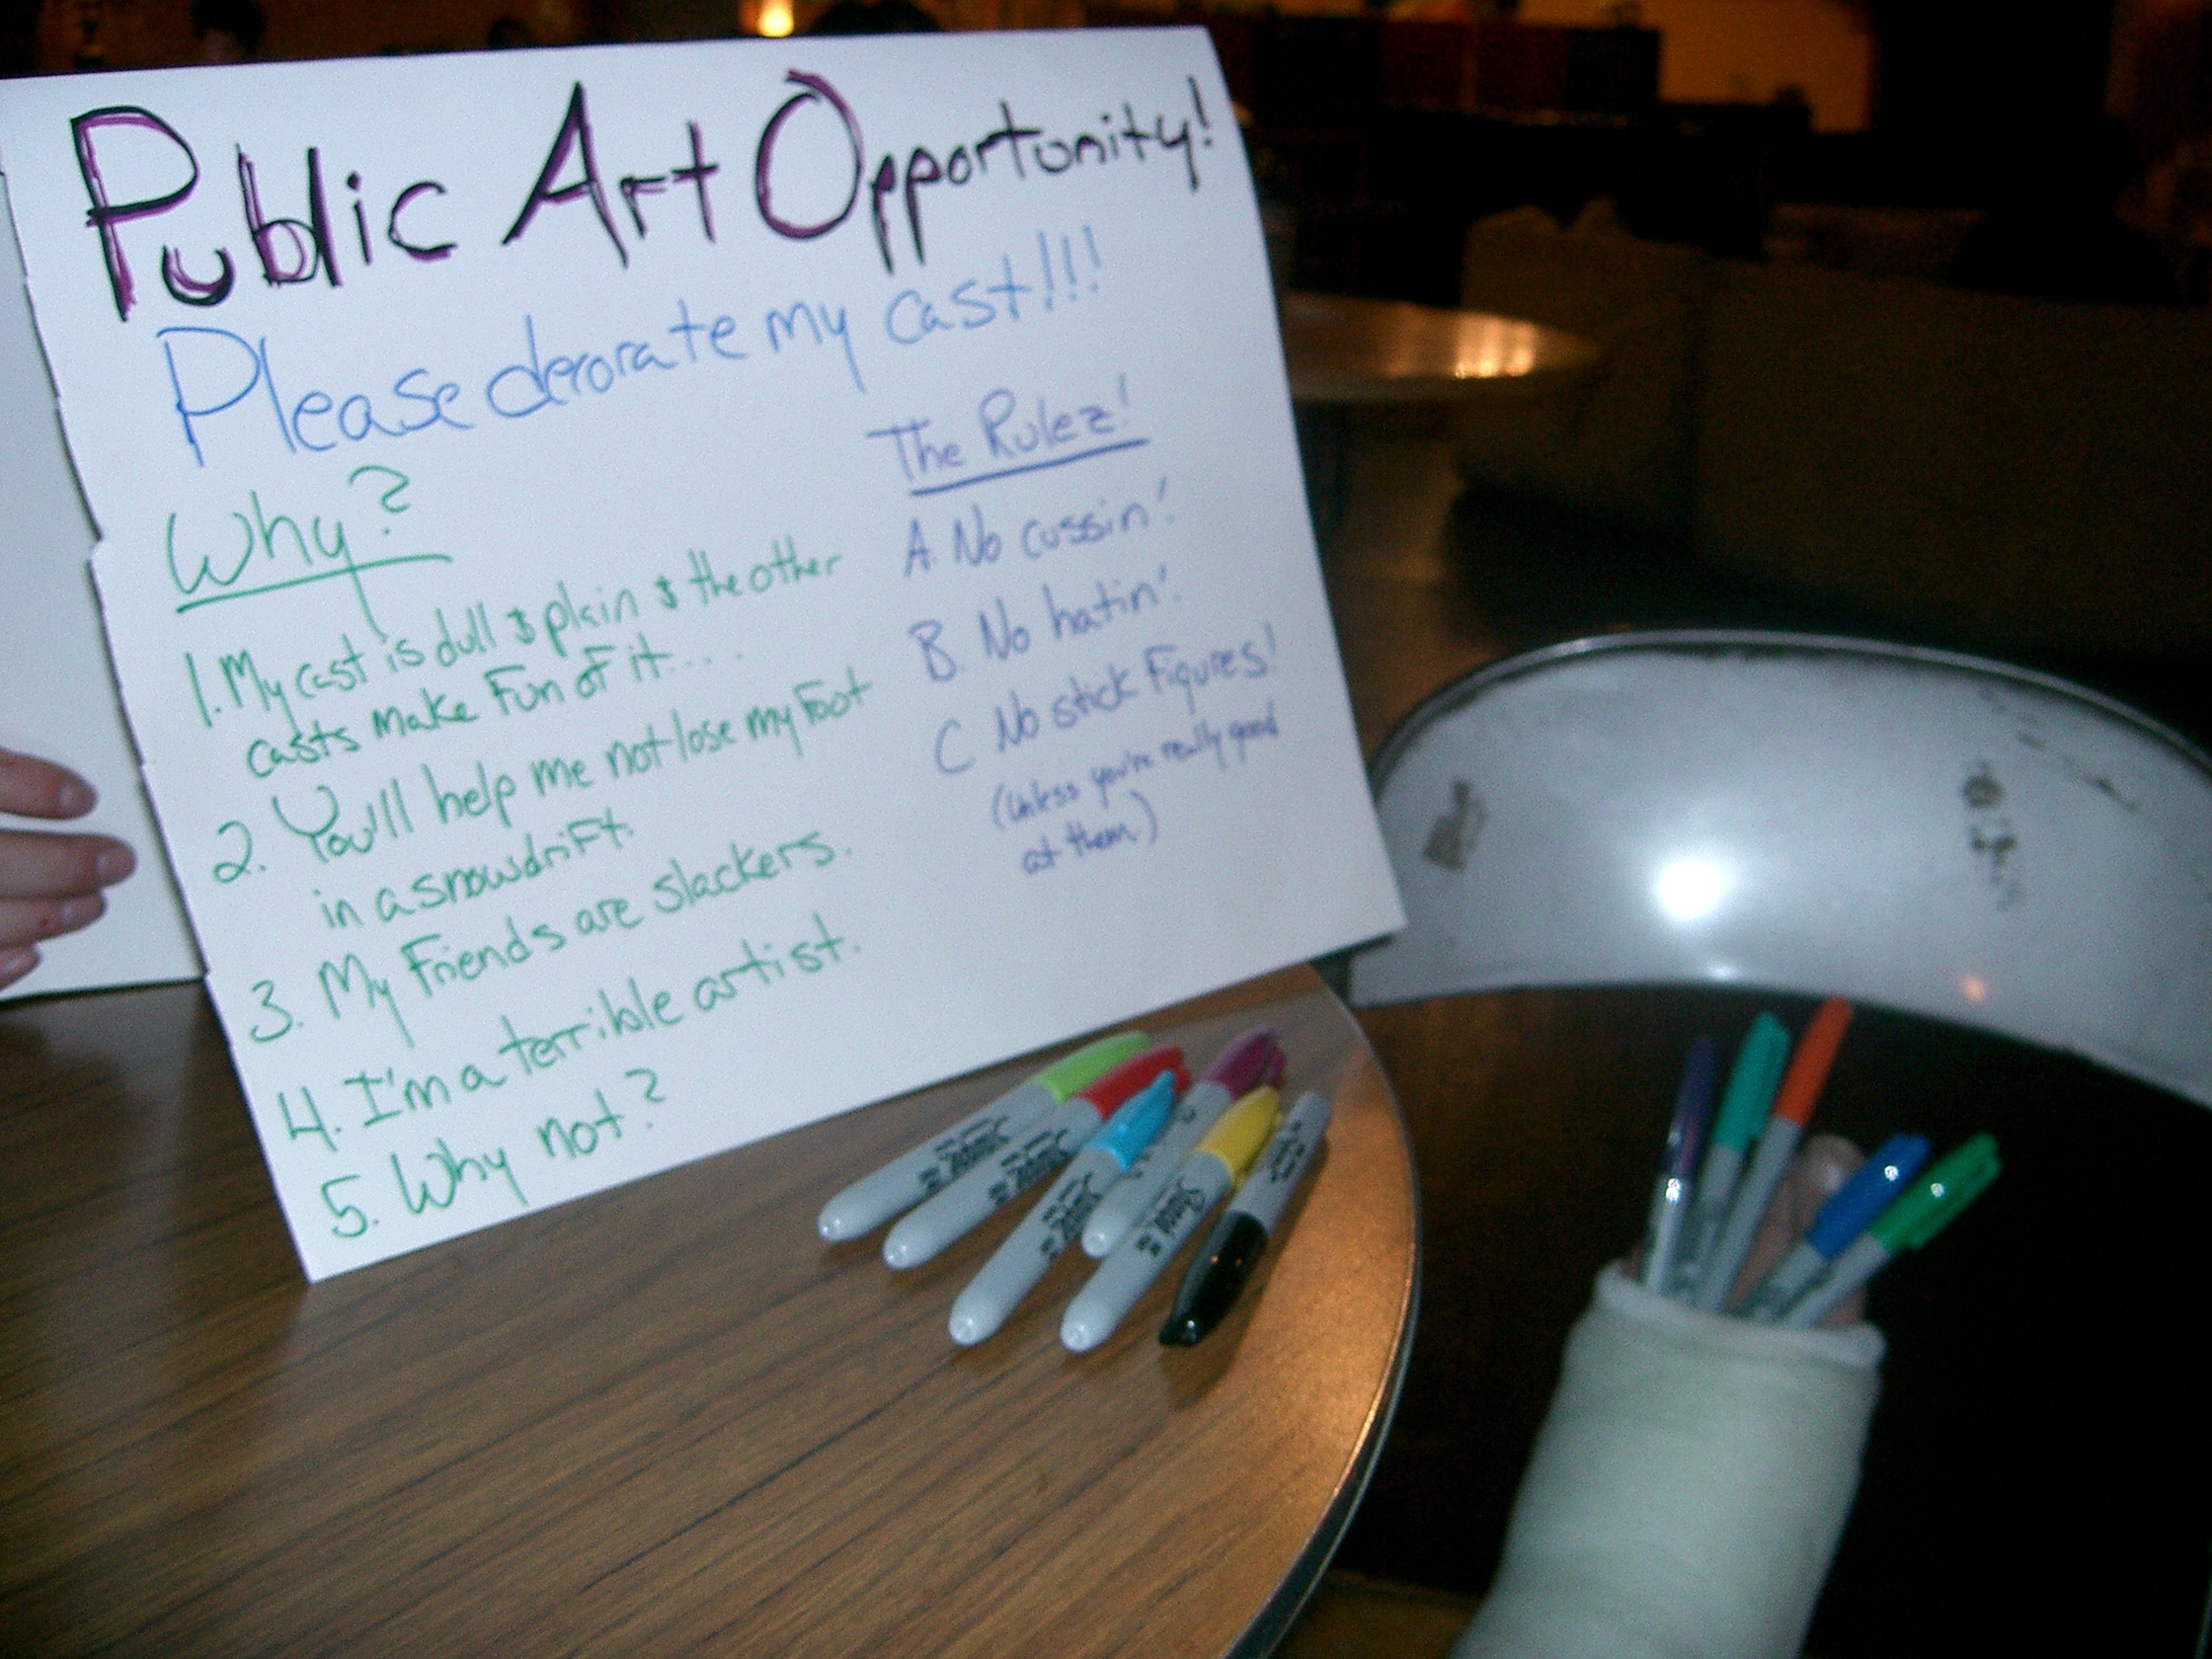 Public Art Opportunity!
Please decorate my cast!!!
Why?
1. My cast is dull & plain & the other
casts make fun of it....
2. You'll help me not lose my foot
in a snowdrift.
3. My friends are slackers.
4. I'm a terrible artist.
5. Why not?
The Rulez!
A. No cussin'!
B. No hatin'!
C No stick figures!
(Unless you're really good
at them.)
Sharpie
Sharpie
Sharpie
Sharpie